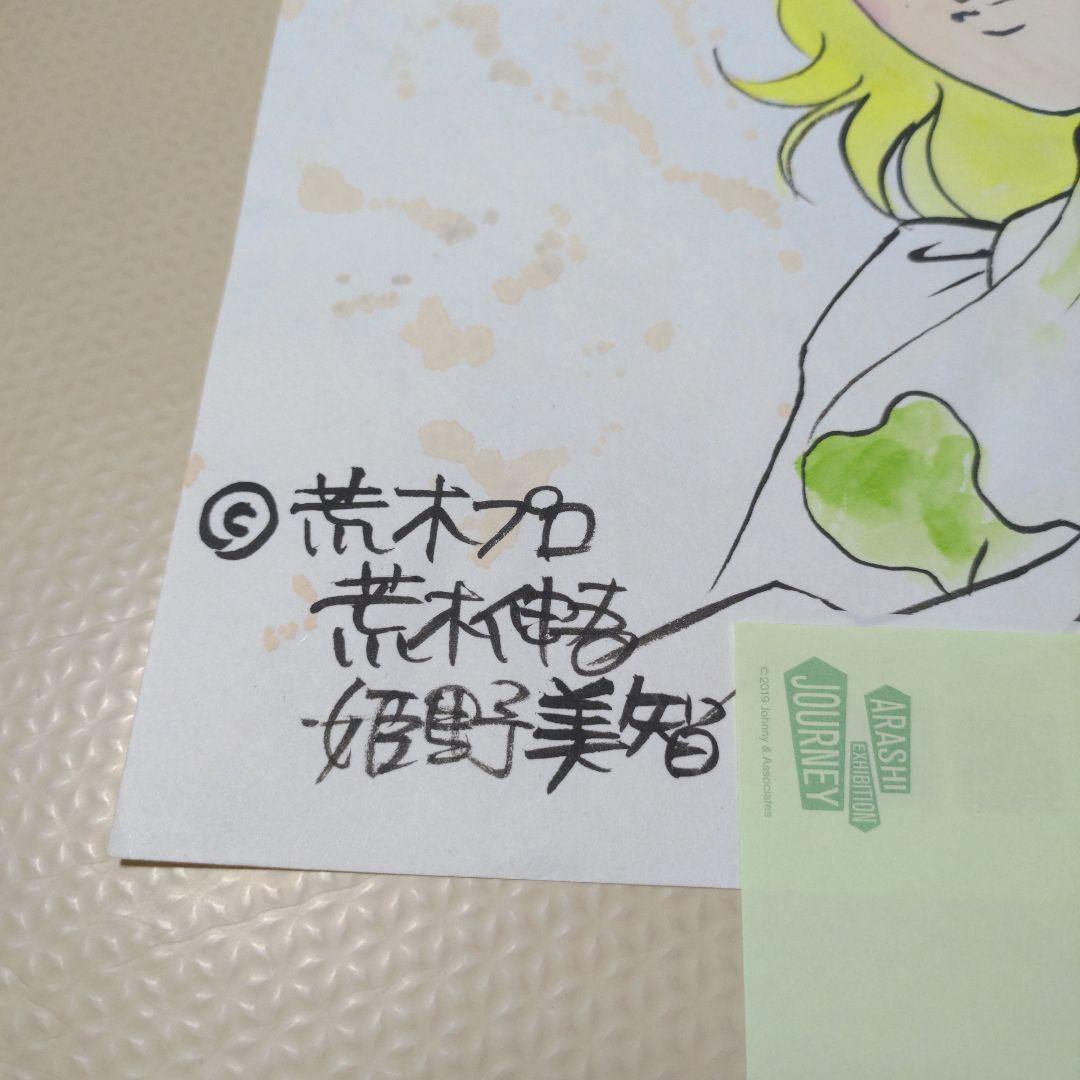 ©荒木プロ
荒木伸吾
姫野美智
ARASHI
EXHIBITION
JOURNEY
©2019 Johnny & Associates